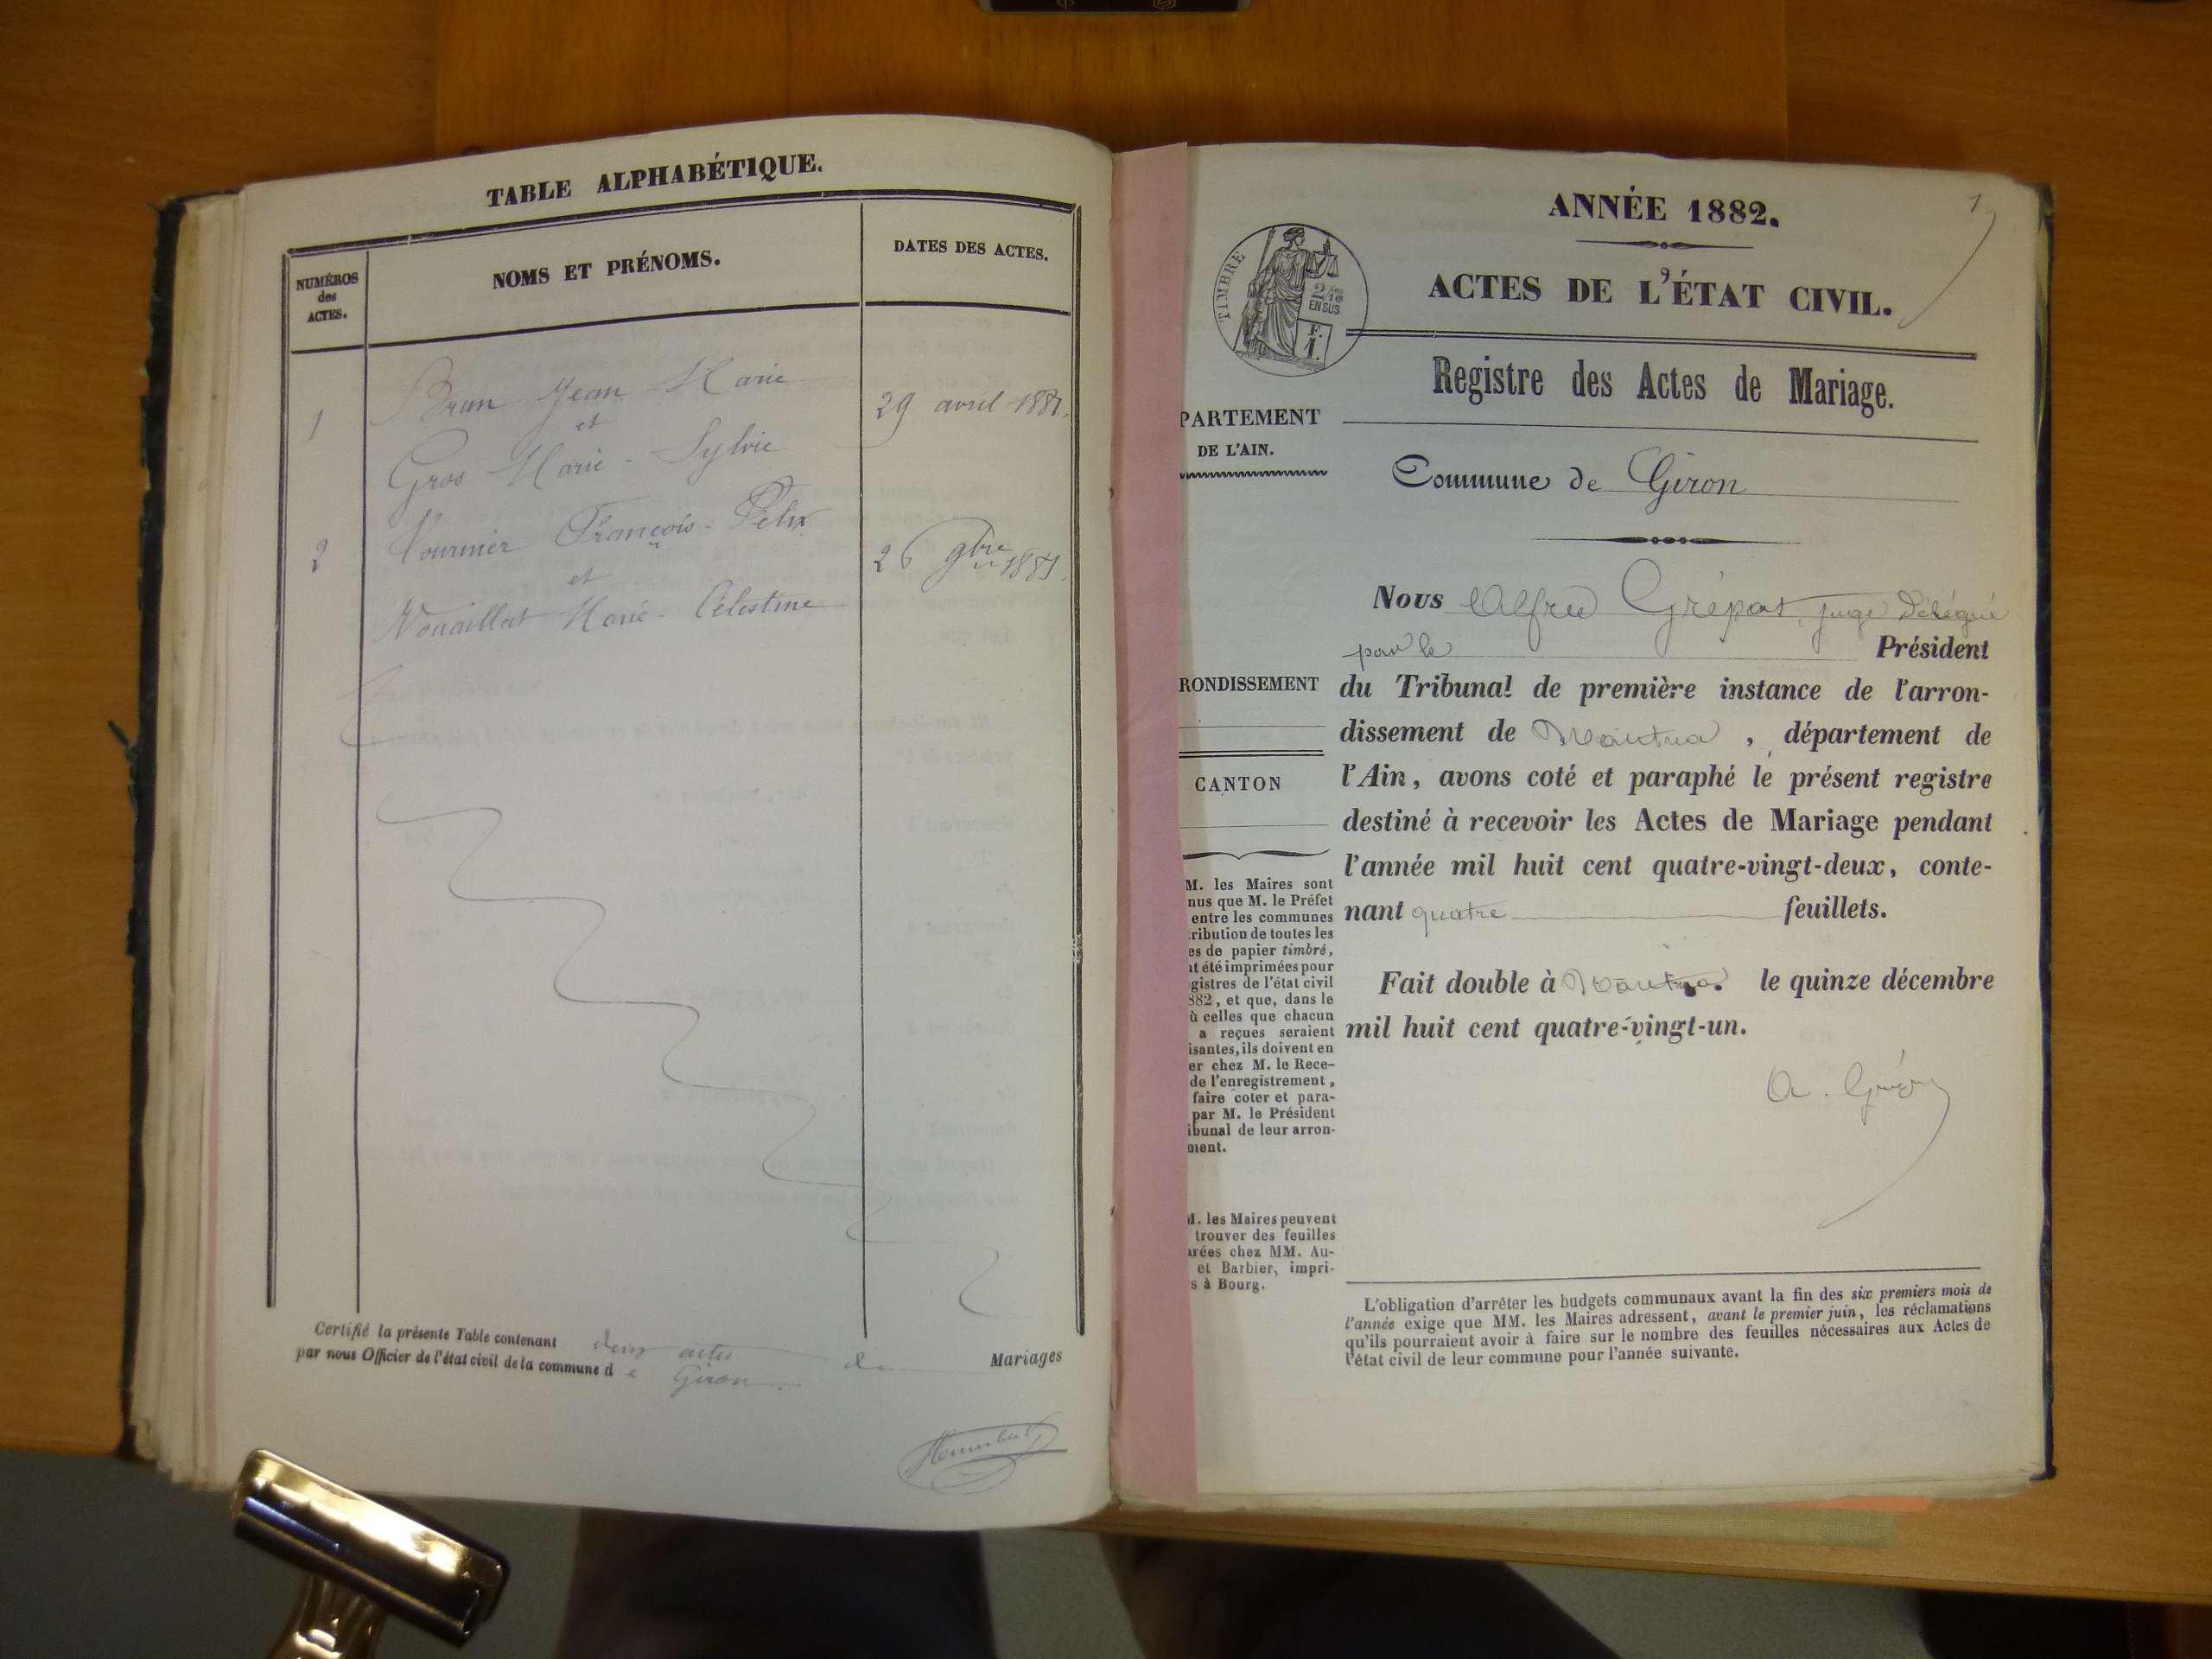 TABLE ALPHABÉTIQUE.
NUMÉROS
des
ACTES.
NOMS ET PRÉNOMS.
DATES DES ACTES.
1
Brun Jean Marie
et
Gros Marie - Sylvie
29 avril 1881.
2
François - Félix
et
Marie - Célestine
26 9bre 1881.
Certifié la présente Table contenant deux actes de Mariages
par nous Officier de l'état civil de la commune de Giron.
Humbert
1
ANNÉE 1882.
ACTES DE L'ÉTAT CIVIL.
TIMBRE
2/10
EN SUS
F.
1.
Registre des Actes de Mariage.
PARTEMENT
DE L'AIN.
Commune de Giron
RONDISSEMENT
CANTON
Nous Alfred Grépat, juge délégué
par le Président
du Tribunal de première instance de l'arron-
dissement de Nantua, département de
l'Ain, avons coté et paraphé le présent registre
destiné à recevoir les Actes de Mariage pendant
l'année mil huit cent quatre-vingt-deux, conte-
nant quatre feuillets.
Fait double à Nantua. le quinze décembre
mil huit cent quatre-vingt-un.
M. les Maires sont
nus que M. le Préfet
entre les communes
tribution de toutes les
es de papier timbré,
nt été imprimées pour
gistres de l'état civil
882, et que, dans le
ù celles que chacun
a reçues seraient
isantes, ils doivent en
er chez M. le Rece-
de l'enregistrement,
faire coter et para-
par M. le Président
ibunal de leur arron-
ment.
M. les Maires peuvent
trouver des feuilles
arées chez MM. Au-
et Barbier, impri-
s à Bourg.
L'obligation d'arrêter les budgets communaux avant la fin des six premiers mois de
l'année exige que MM. les Maires adressent, avant le premier juin, les réclamations
qu'ils pourraient avoir à faire sur le nombre des feuilles nécessaires aux Actes de
l'état civil de leur commune pour l'année suivante.